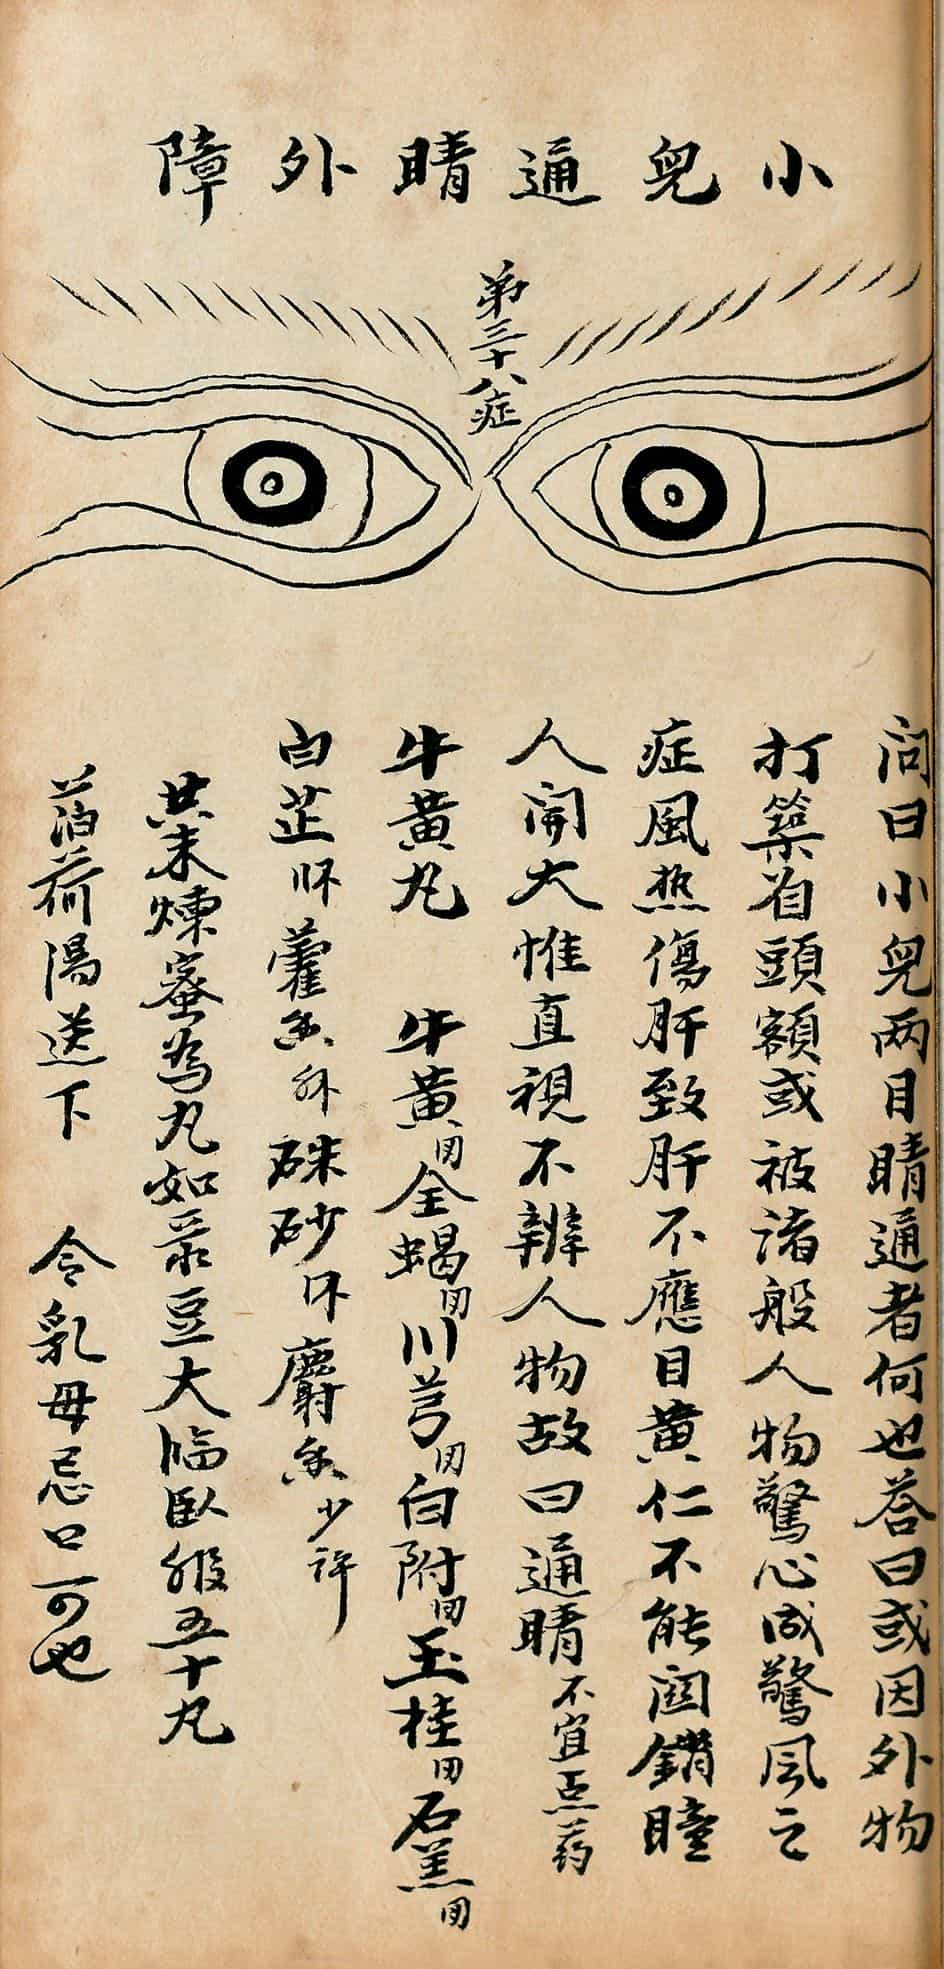 小兒通睛外障
弟三十八症
问曰小兒两目睛通者何也荅曰或因外物
打築着頭額或被诸般人物驚心成驚風之
症風热傷肝致肝不應目黄仁不能囪鎖瞳
人開大惟直視不辨人物故曰通睛不宜点药
牛黄丸 牛黄全蝎川芎白附玉桂石羔
白芷藿香硃砂麝香少許
共末煉蜜為丸如菉豆大临臥服五十丸
萡荷湯送下 令乳母忌口可也